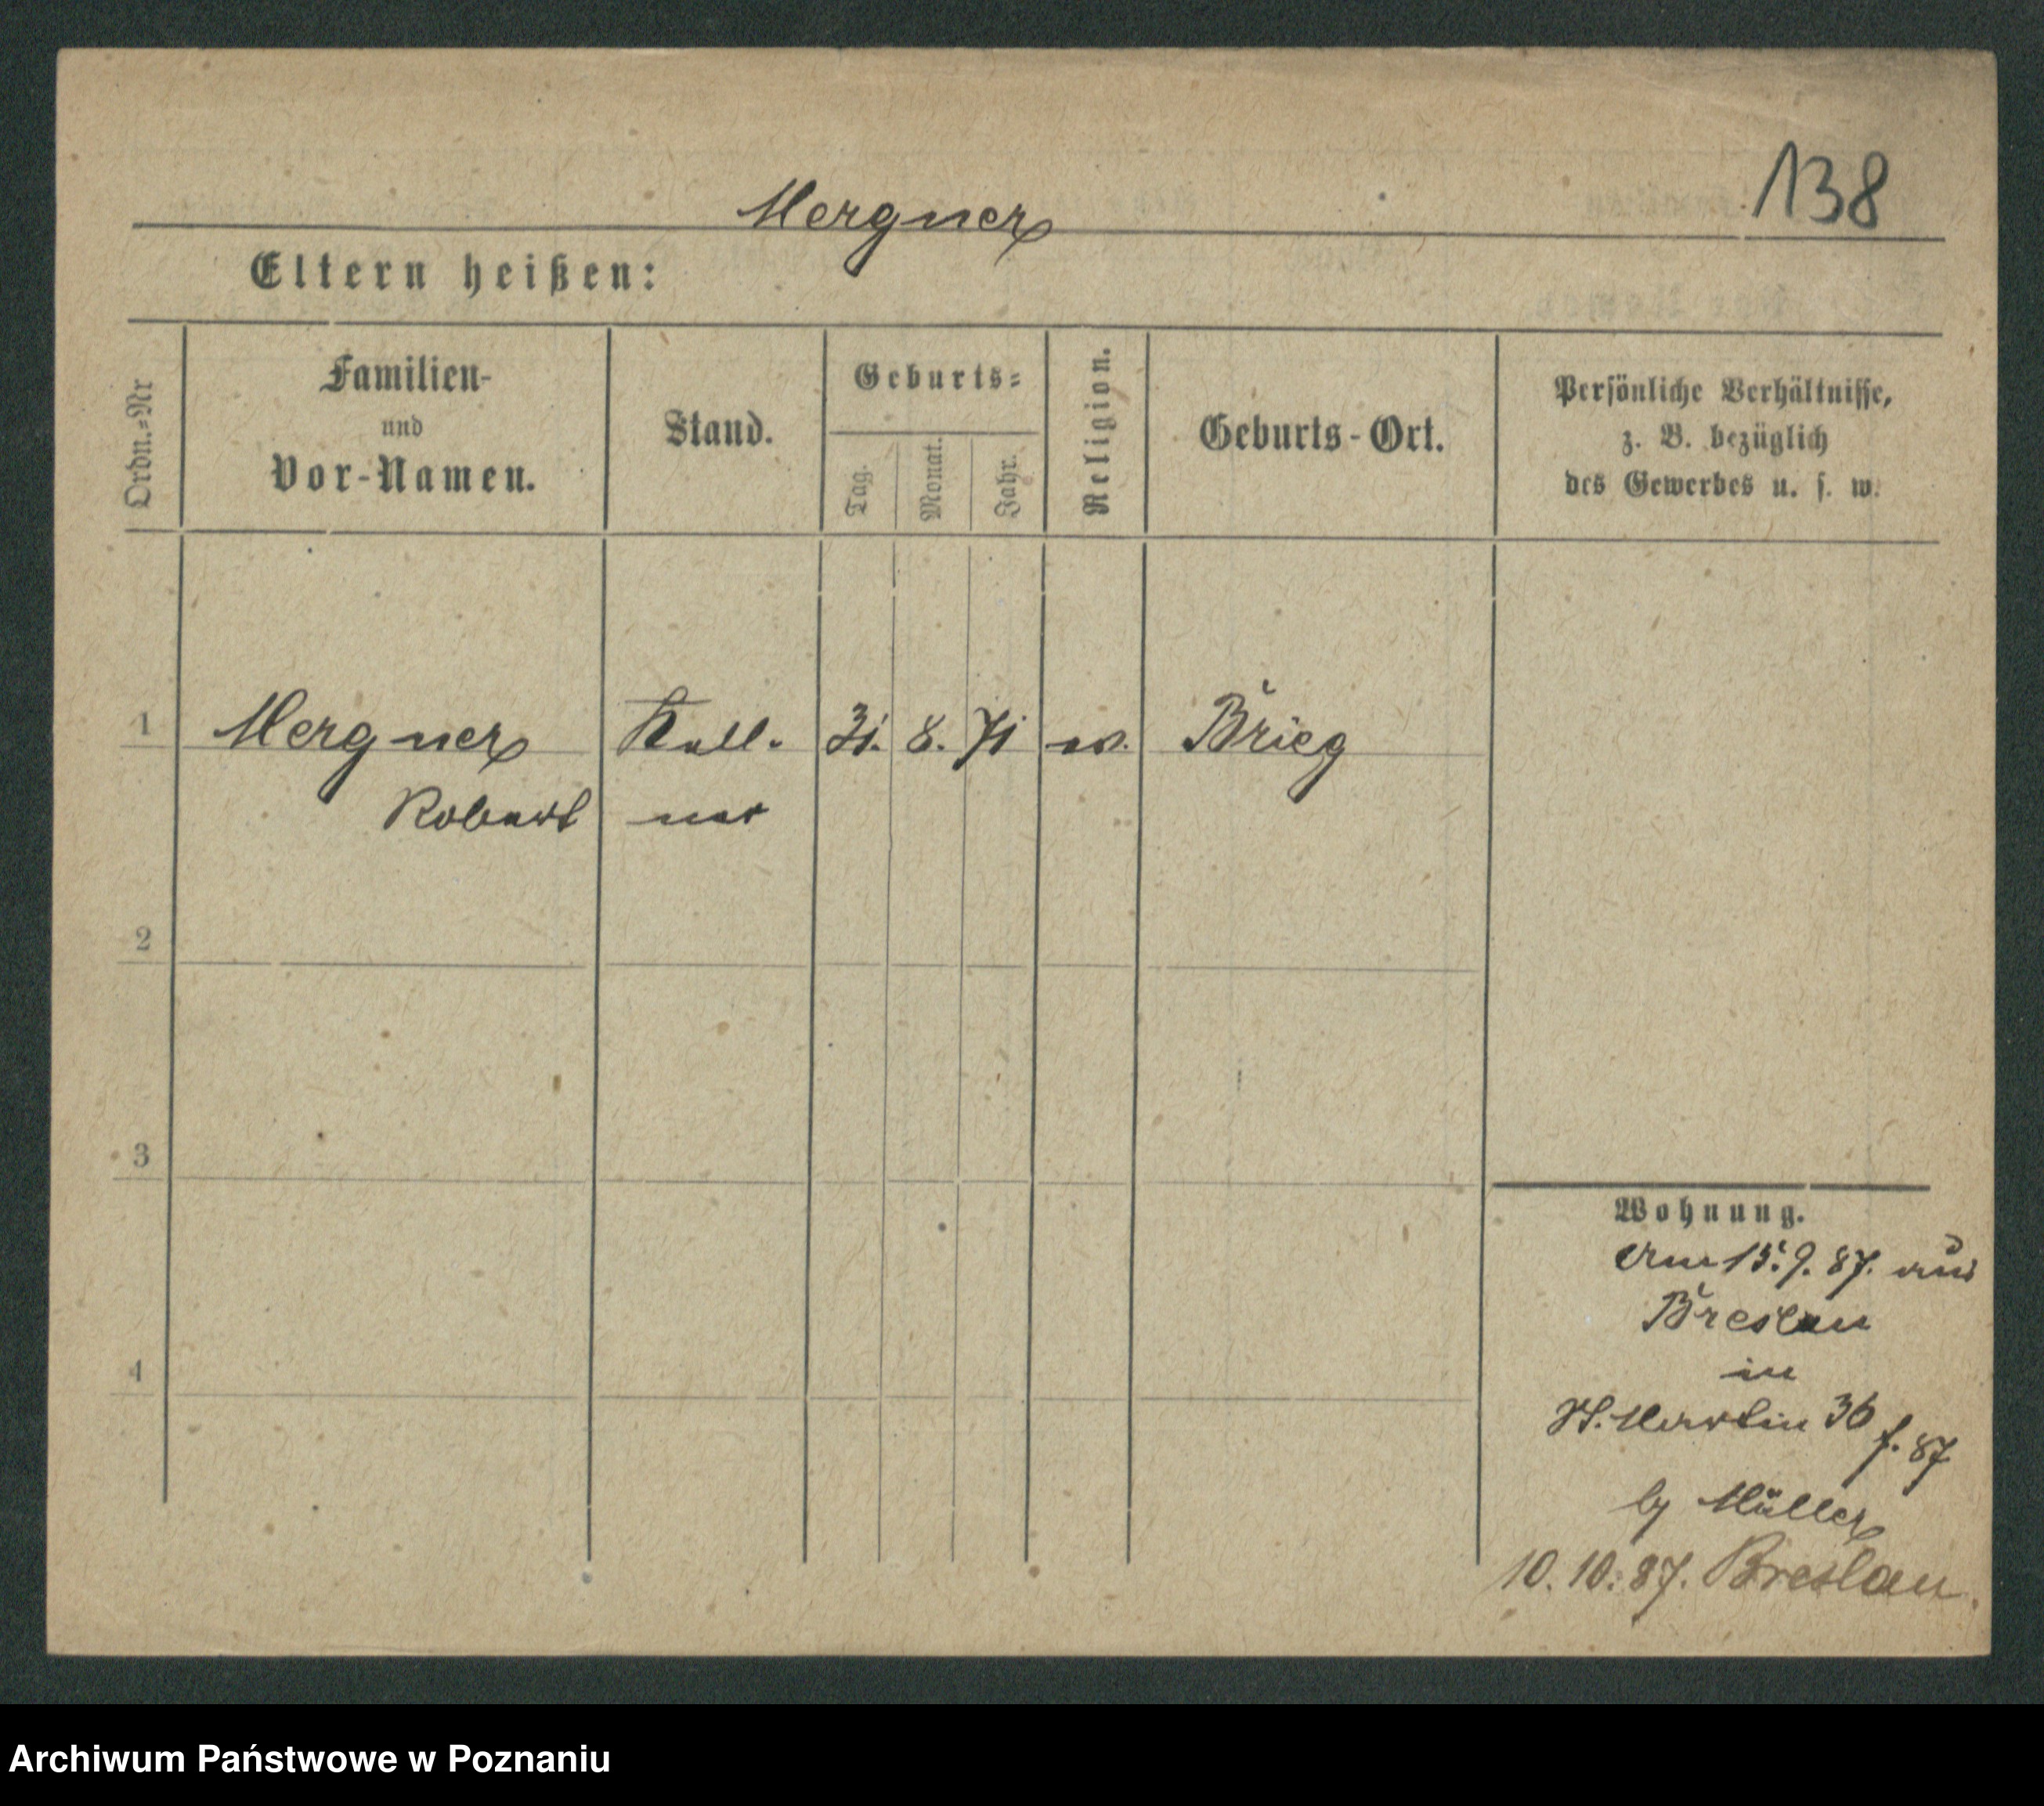 138
Mergner
Eltern heißen:
Ordn.-Nr
Familien-
und
Vor-Namen.
Stand.
Geburts-
Tag.
Monat.
Jahr.
Religion.
Geburts-Ort.
Persönliche Verhältnisse,
z. B. bezüglich
des Gewerbes u. s. w.
1 Mergner Kell- 31. 8. 71 ev. Brieg
Robert ner
2
3
4
Wohnung.
Am 15.9.87. aus
Breslau
in
St. Martin 36
f. 87
by Müller
10.10.87. Breslau.
Archiwum Państwowe w Poznaniu